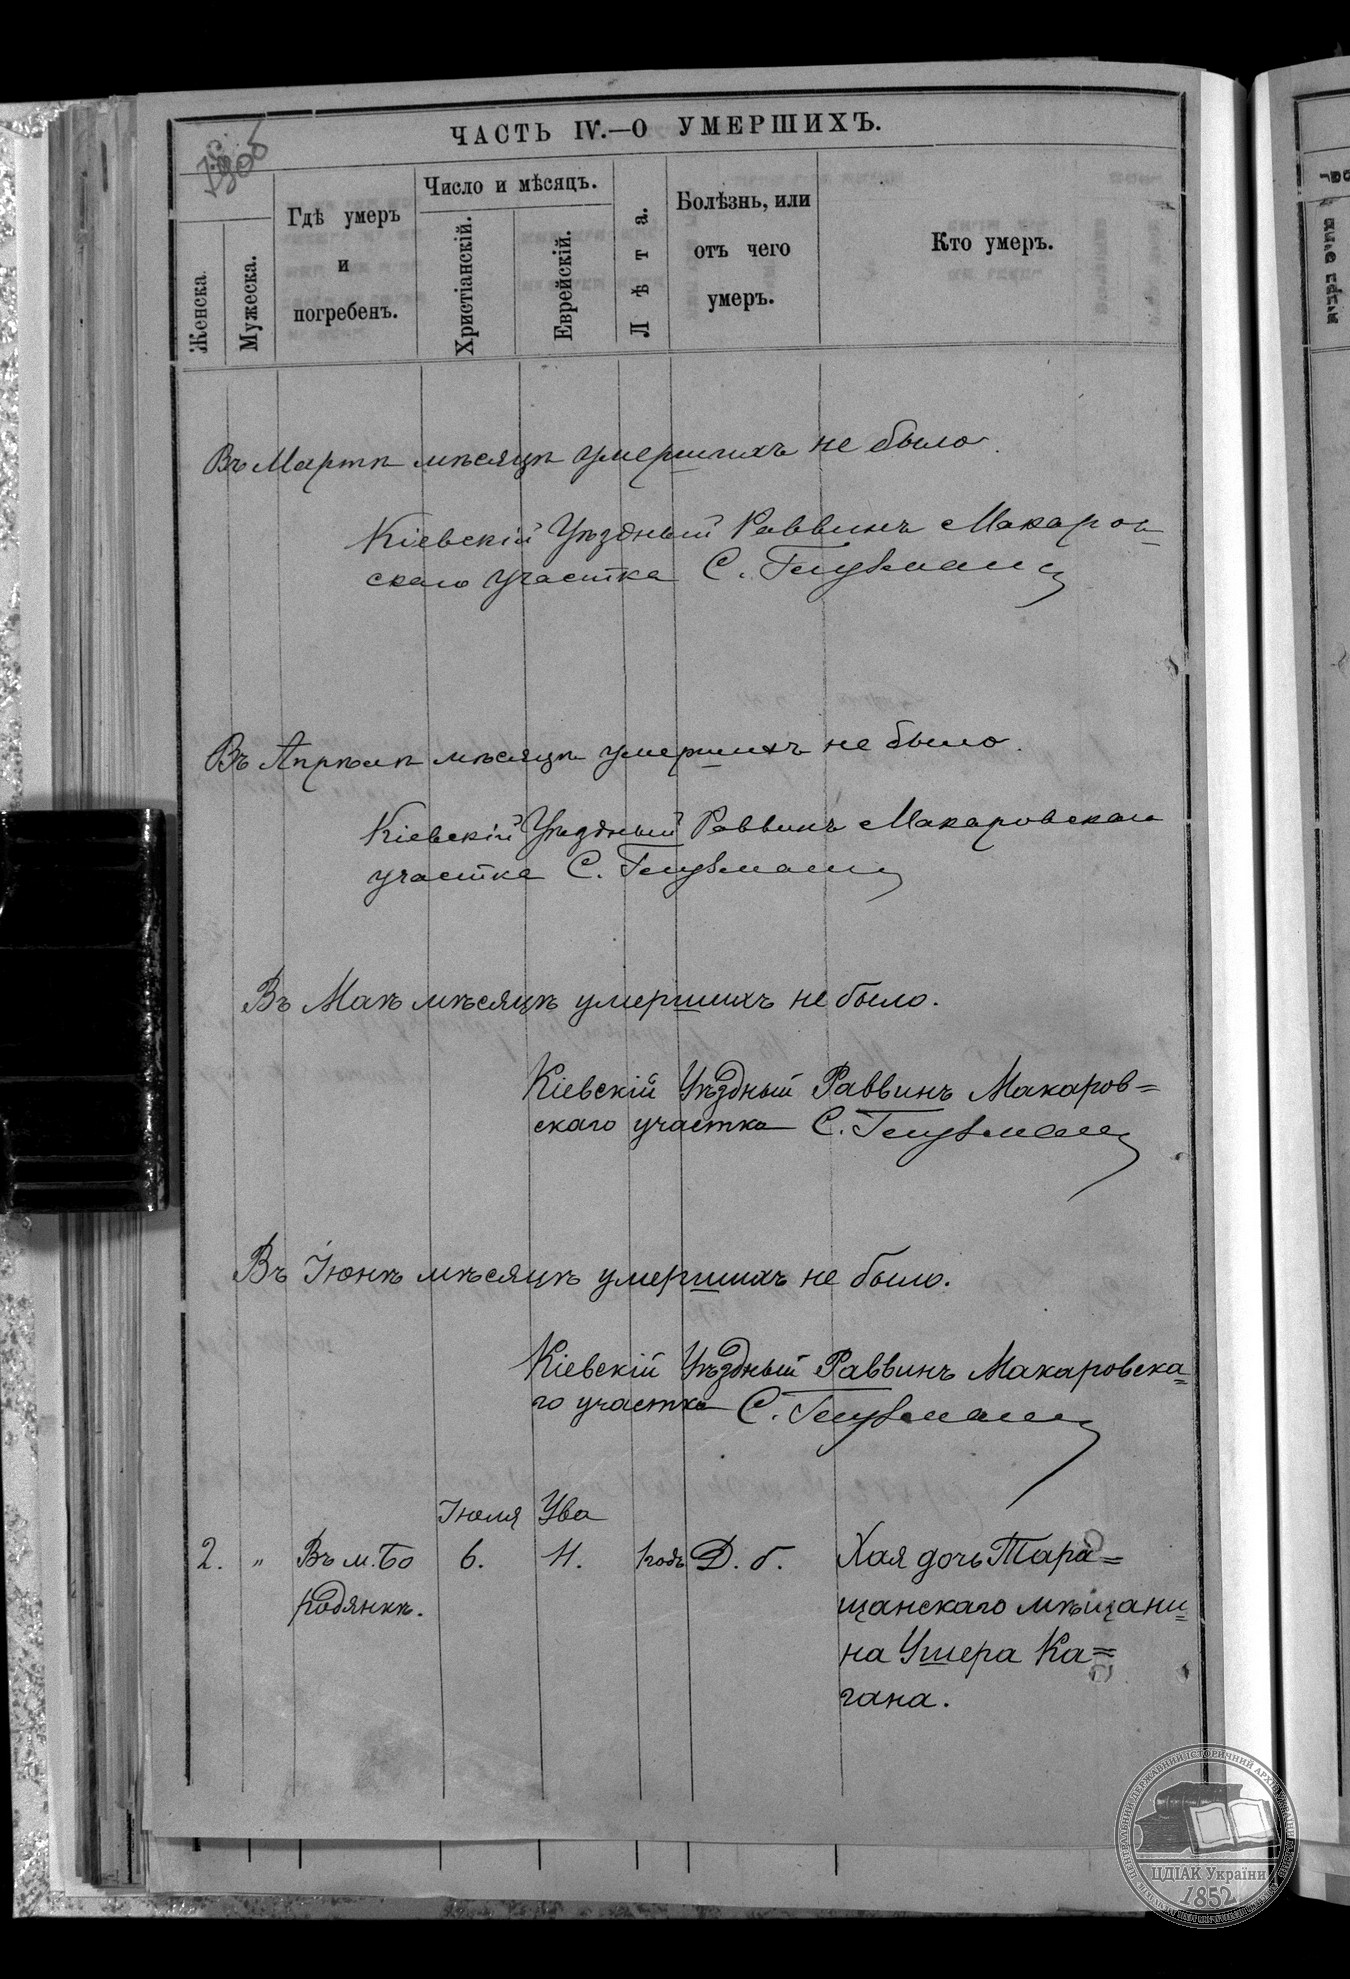 ЧАСТЬ IV.—О УМЕРШИХЪ.
Женска.
Мужеска.
Гдѣ умеръ
и
погребенъ.
Число и мѣсяцъ.
Христіанскій.
Еврейскій.
Лѣта.
Болѣзнь, или
отъ чего
умеръ.
Кто умеръ.
Въ Мартѣ мѣсяцѣ умершихъ не было.
Кіевскій Уѣздный Раввинъ Макаров=
скаго участка С.
Въ Апрѣлѣ мѣсяцѣ умершихъ не было.
Кіевскій Уѣздный Раввинъ Макаровскаго
участка С.
Въ Маѣ мѣсяцѣ умершихъ не было.
Кіевскій Уѣздный Раввинъ Макаров=
скаго участка С.
Въ Іюнѣ мѣсяцѣ умершихъ не было.
Кіевскій Уѣздный Раввинъ Макаровска=
го участка С.
Іюля Ува
2. " Въ м. Бо 6. 11. 1 годъ Д. б. Хая дочь Тара=
родянкѣ. щанскаго мѣщани=
на Ушера Ка=
гана.
ЦДІАК України
1852